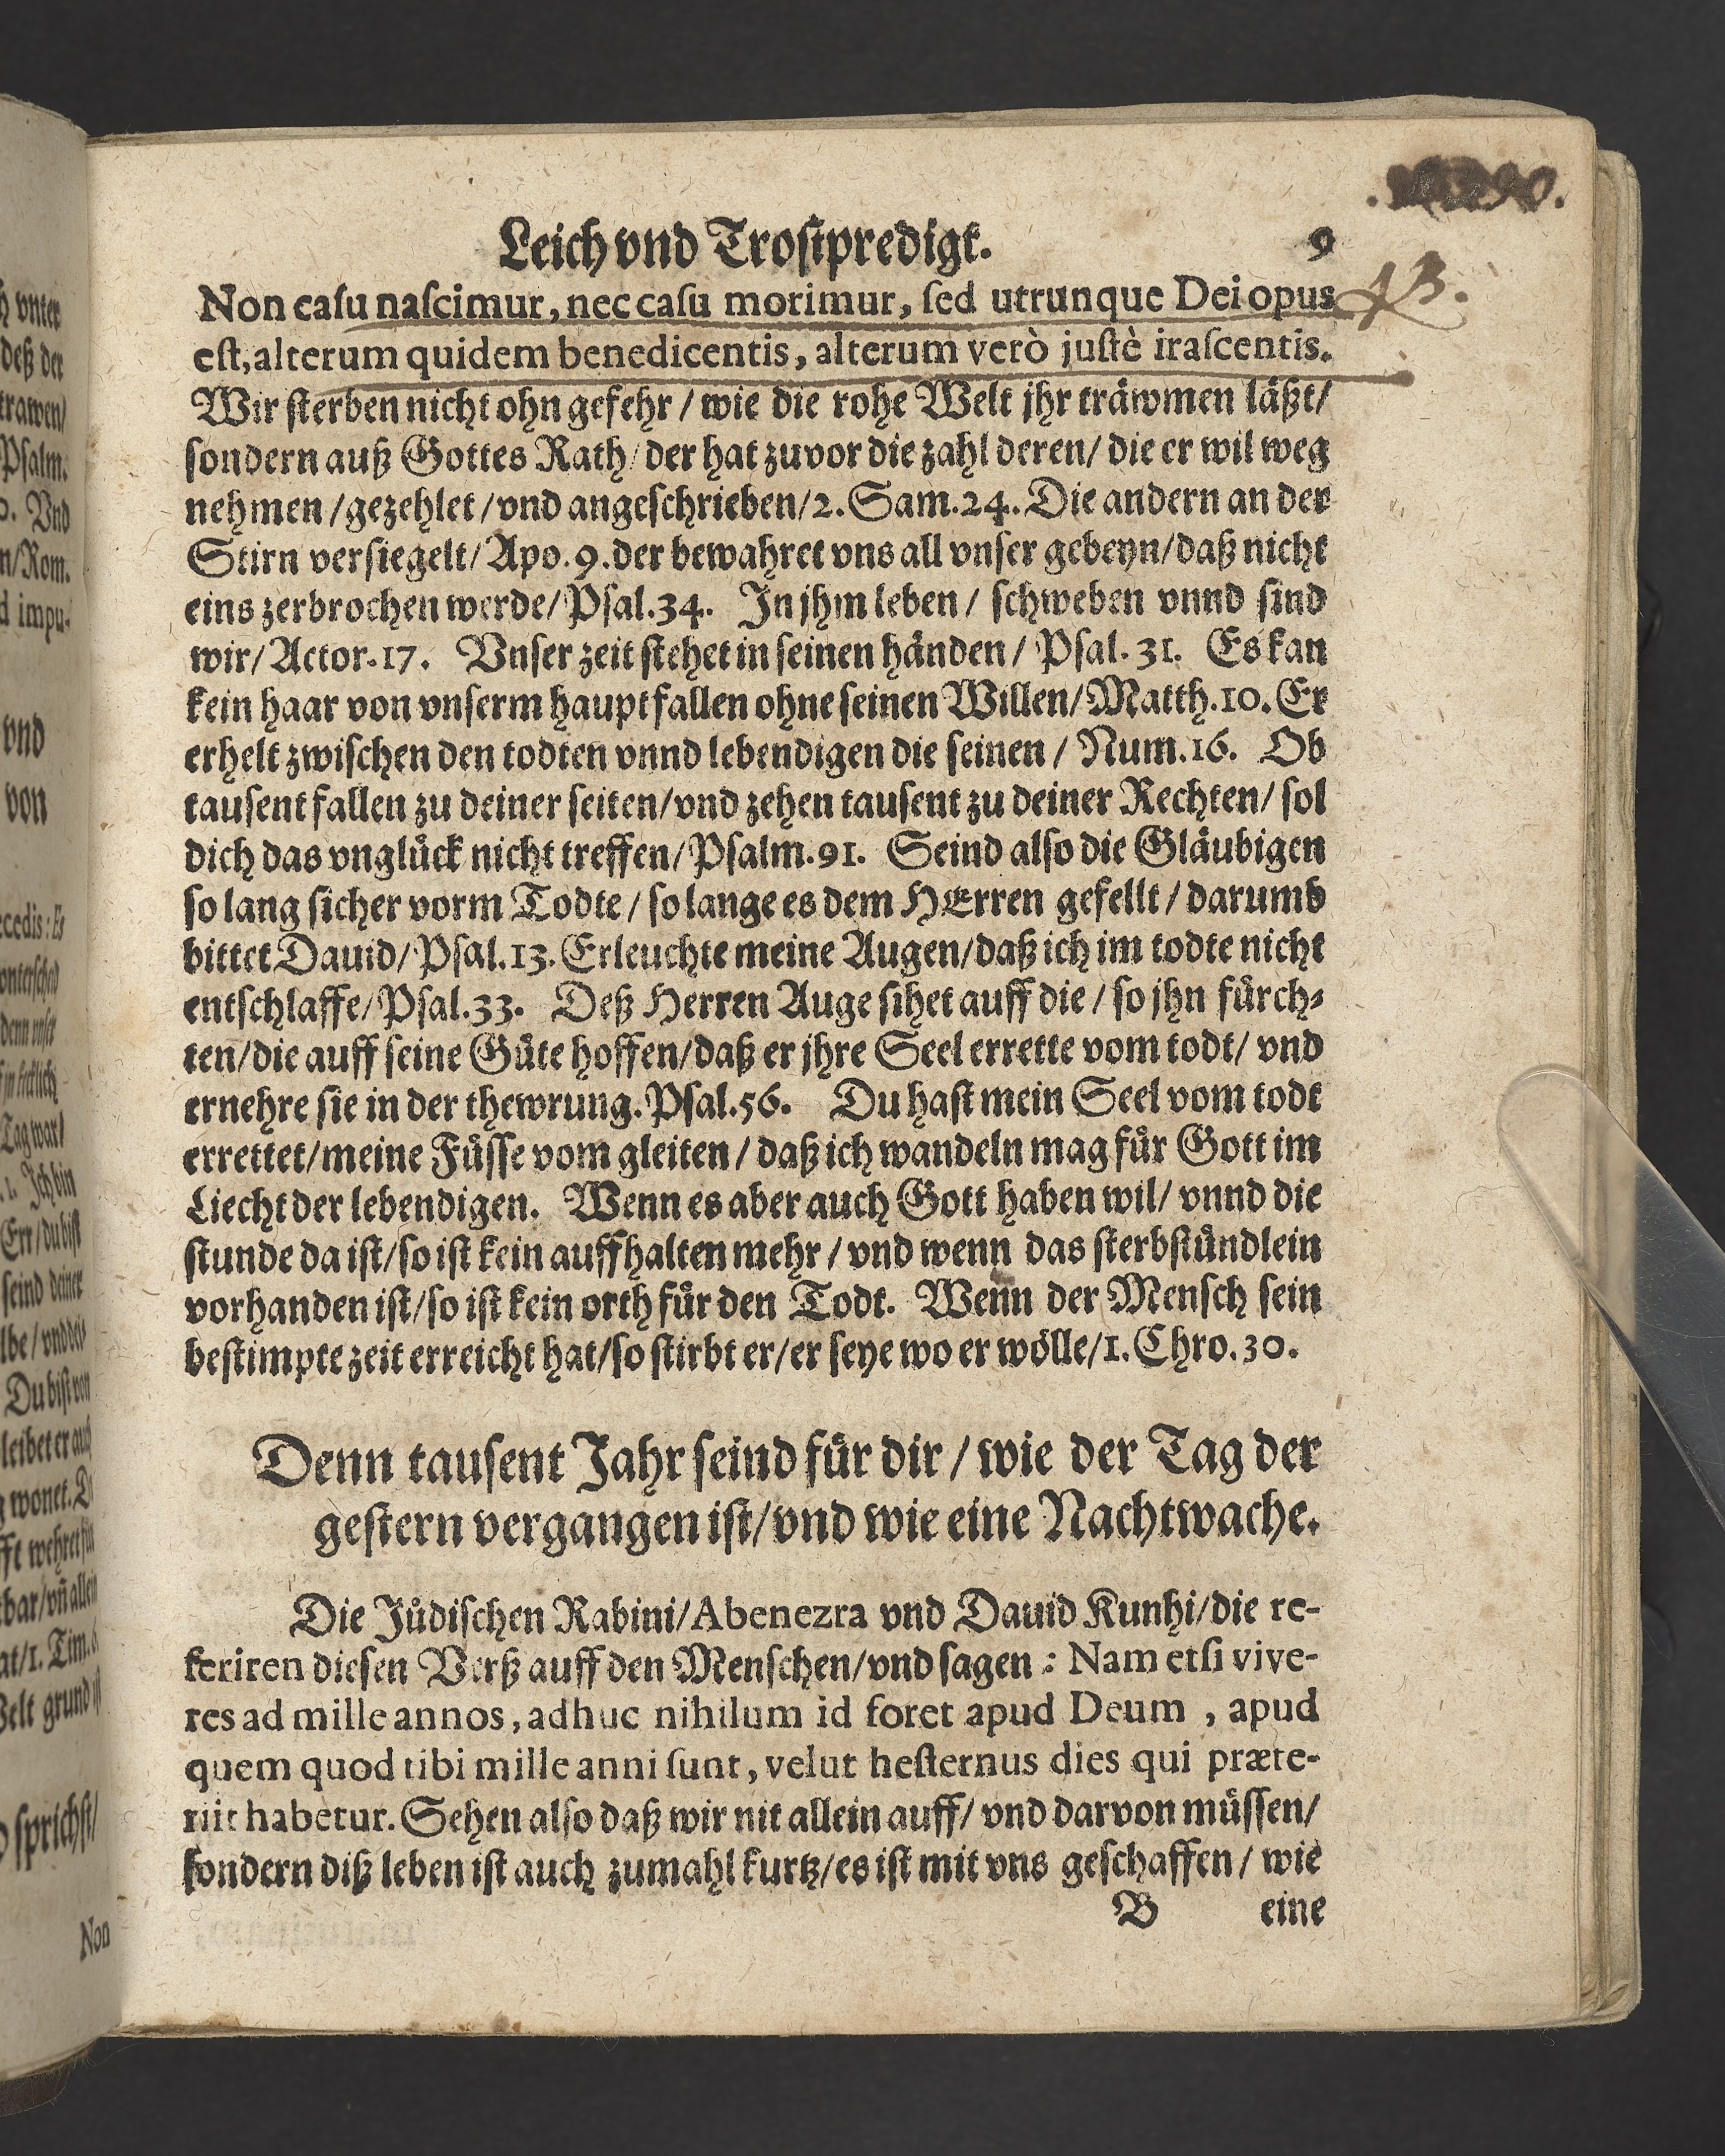 Leich vnd Trostpredigt. 9
Non casu nascimur, nec casu morimur, sed utrunque Dei opus
est, alterum quidem benedicentis, alterum verò justè irascentis.
Wir sterben nicht ohn gefehr / wie die rohe Welt jhr träwmen läßt/
sondern auß Gottes Rath/ der hat zuvor die zahl deren/ die er wil weg
nehmen /gezehlet /vnd angeschrieben/2. Sam.24. Die andern an der
Stirn versiegelt/ Apo. 9. der bewahret vns all vnser gebeyn/daß nicht
eins zerbrochen werde/ Psal.34. In jhm leben / schweben vnnd sind
wir/ Actor.17. Vnser zeit stehet in seinen händen / Psal. 31. Es kan
kein haar von vnserm haupt fallen ohne seinen Willen/ Matth.10. Er
erhelt zwischen den todten vnnd lebendigen die seinen / Num.16. Ob
tausent fallen zu deiner seiten/vnd zehen tausent zu deiner Rechten/ sol
dich das vnglück nicht treffen/ Psalm.91. Seind also die Gläubigen
so lang sicher vorm Todte / so lange es dem HErren gefellt / darumb
bittet Dauid/ Psal.13. Erleuchte meine Augen/daß ich im todte nicht
entschlaffe/ Psal.33. Deß Herren Auge sihet auff die / so jhn fürch-
ten/die auff seine Güte hoffen/daß er jhre Seel errette vom todt/ vnd
ernehre sie in der thewrung. Psal.56. Du hast mein Seel vom todt
errettet/meine Füsse vom gleiten / daß ich wandeln mag für Gott im
Liecht der lebendigen. Wenn es aber auch Gott haben wil/ vnnd die
stunde da ist/so ist kein auffhalten mehr / vnd wenn das sterbstündlein
vorhanden ist/so ist kein orth für den Todt. Wenn der Mensch sein
bestimpte zeit erreicht hat/so stirbt er/er seye wo er wölle/1. Chro.30.
Denn tausent Jahr seind für dir / wie der Tag der
gestern vergangen ist/vnd wie eine Nachtwache.
Die Jüdischen Rabini/Abenezra vnd Dauid Kunhi/die re-
feriren diesen Verß auff den Menschen/vnd sagen : Nam etsi vive-
res ad mille annos, adhuc nihilum id foret apud Deum , apud
quem quod tibi mille anni sunt, velut hesternus dies qui præte-
riit habetur. Sehen also daß wir nit allein auff/ vnd darvon müssen/
sondern diß leben ist auch zumahl kurtz/es ist mit vns geschaffen / wie
B eine